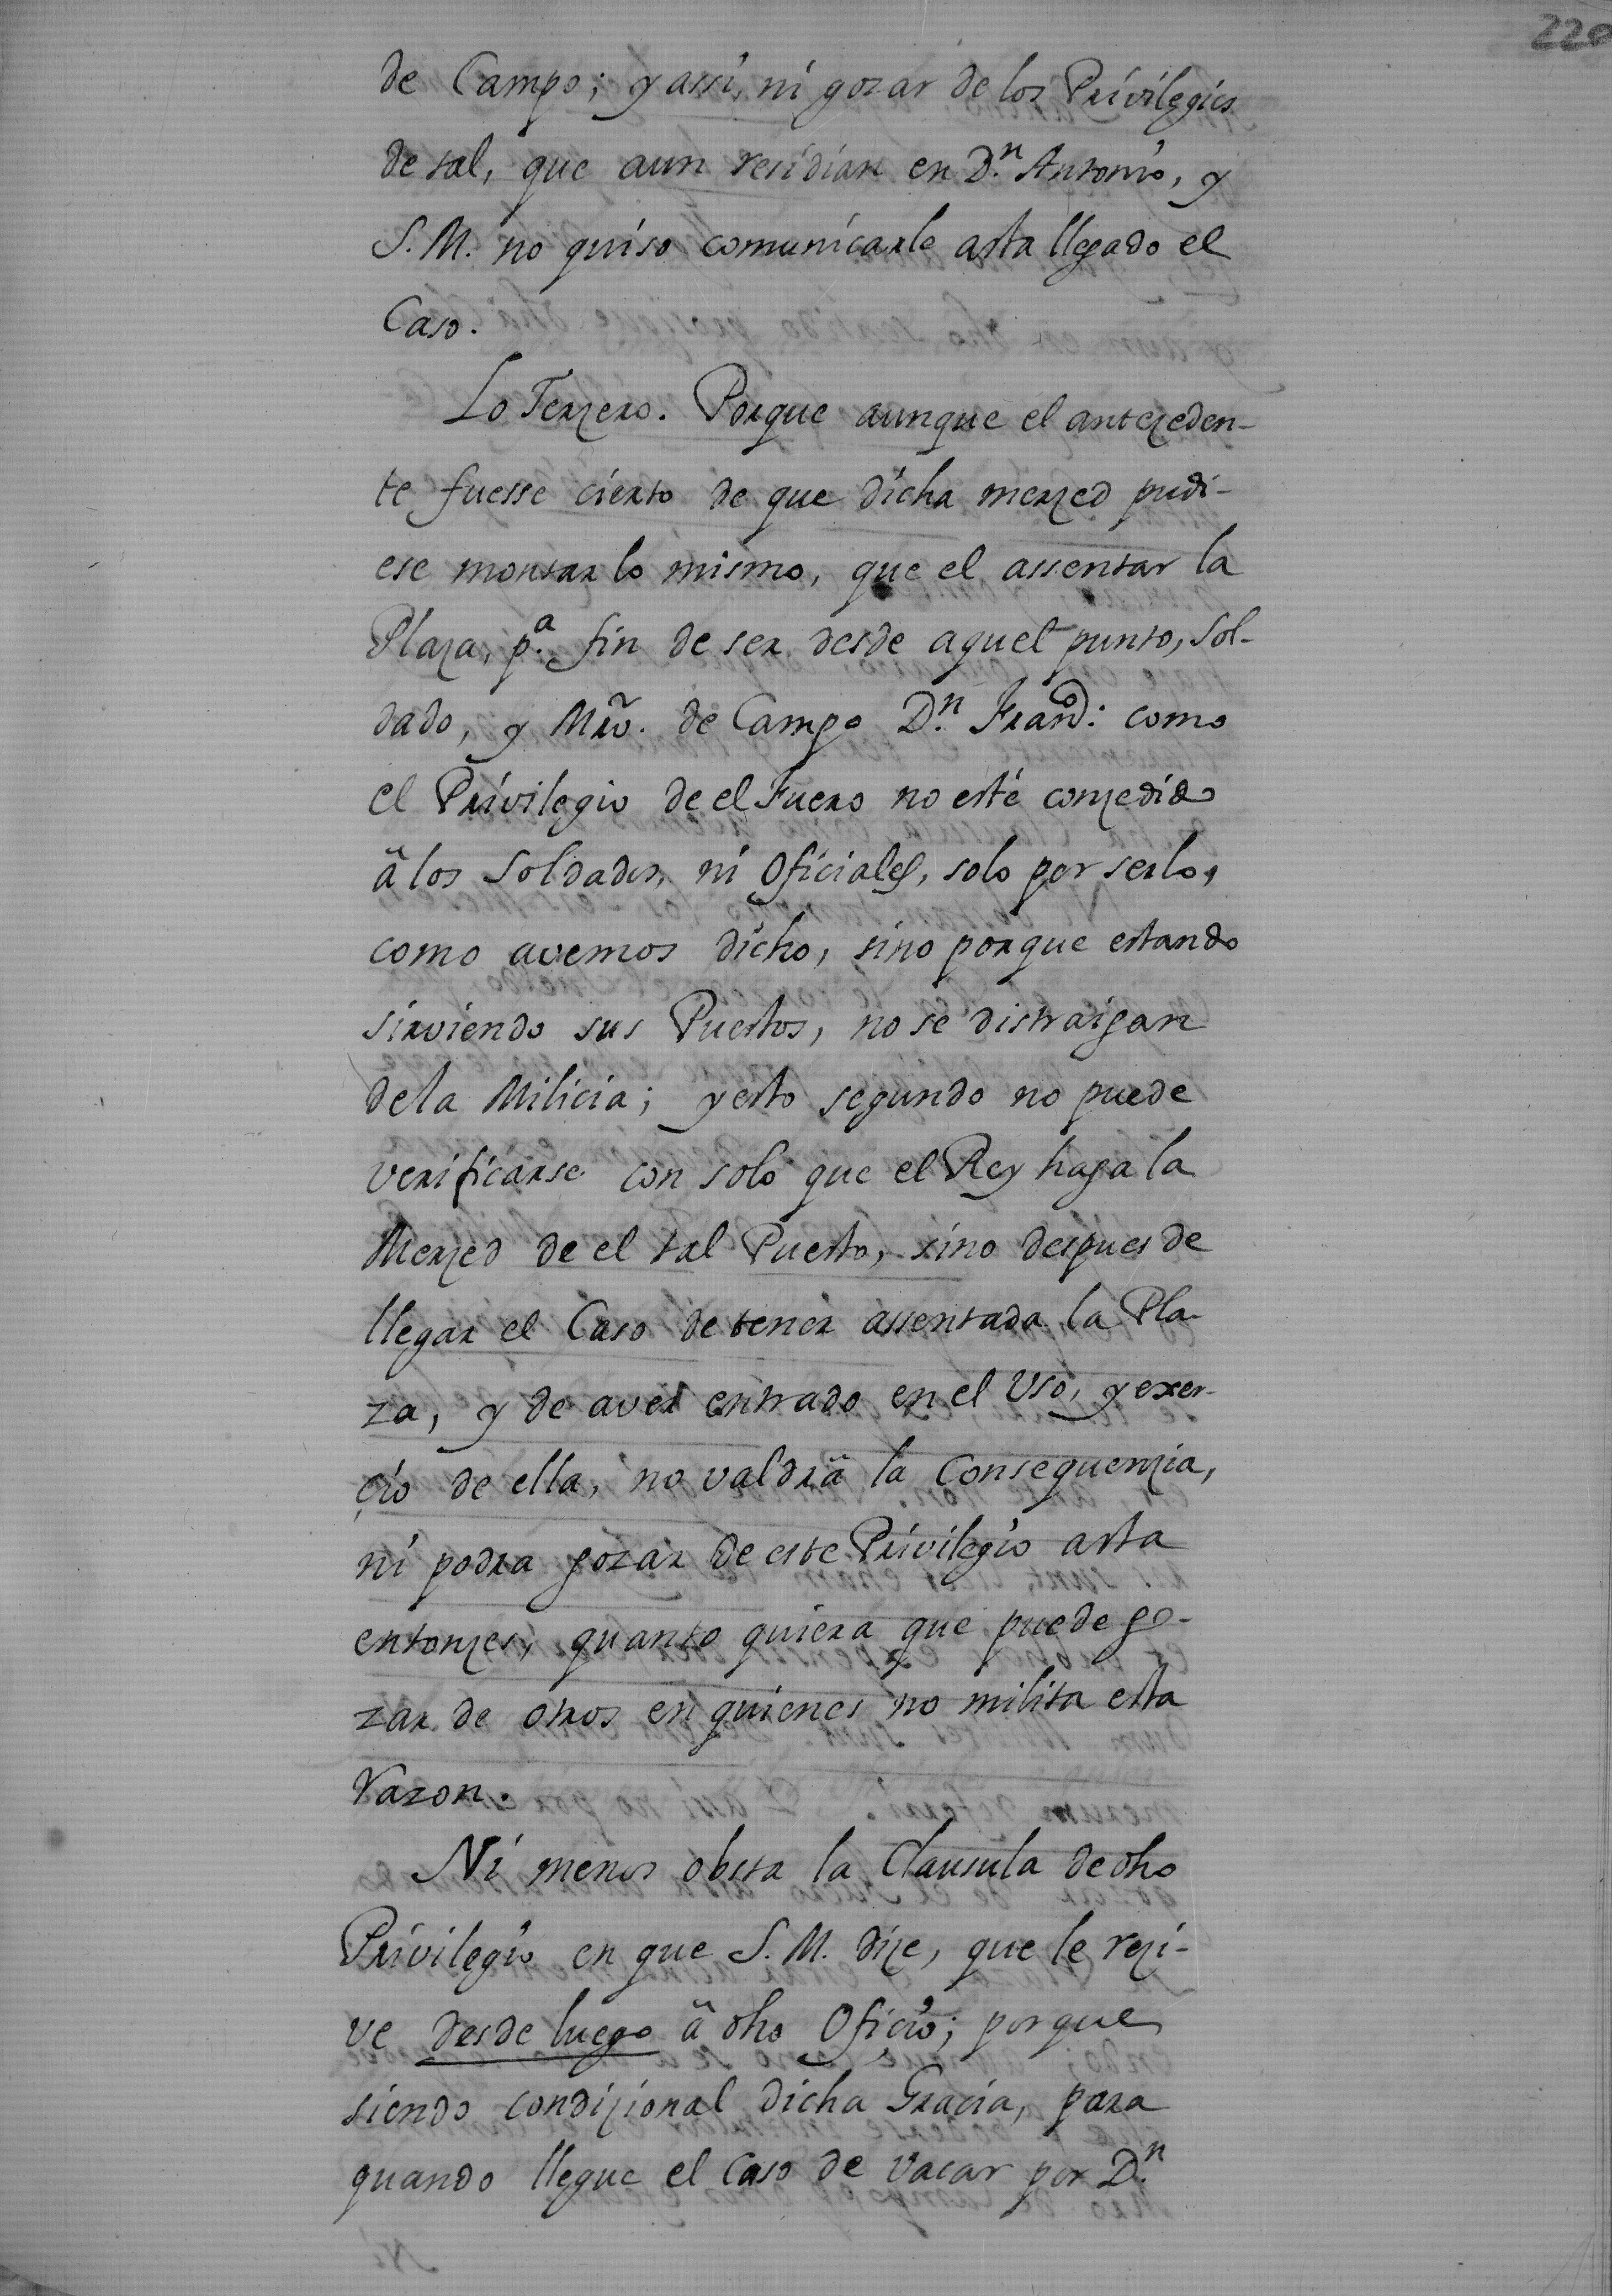 220
de Campo; y assi, ni gozar de los Privilegios
de tal, que aun residian en D.ⁿ Antonio, y
S. M. no quiso comunicarle asta llegado el
Caso.
Lo Terzero. Porque aunque el antezeden-
te fuesse cierto de que dicha merzed pudi-
ese montar lo mismo, que el assentar la
Plaza, p.ᵃ fin de ser desde aquel punto, Sol-
dado, y Mr̃o. de Campo D.ⁿ Fran.ᶜᵒ: como
el Privilegio de el Fuero no esté conzedido
â los Soldados, ni Oficiales, solo por serlo,
como avemos dicho, sino porque estando
sirviendo sus Puestos, no se distraigan
de la Milicia; y esto segundo no puede
verificarse con solo que el Rey haga la
Merzed de el tal Puesto, sino despues de
llegar el Caso de tener assentada la Pla-
za, y de aver entrado en el Uso, y exer-
çio de ella, no valdrâ la Consequenzia,
ni podra gozar de este Privilegio asta
entonzes, quanto quiera que puede go-
zar de otros en quienes no milita esta
razon.
Ni menos obsta la Clausula de dho
Privilegio en que S. M. dize, que le rezi-
ve desde luego â dho Ofiçio; porque
siendo condizional dicha Gracia, para
quando llegue el Caso de vacar por D.ⁿ